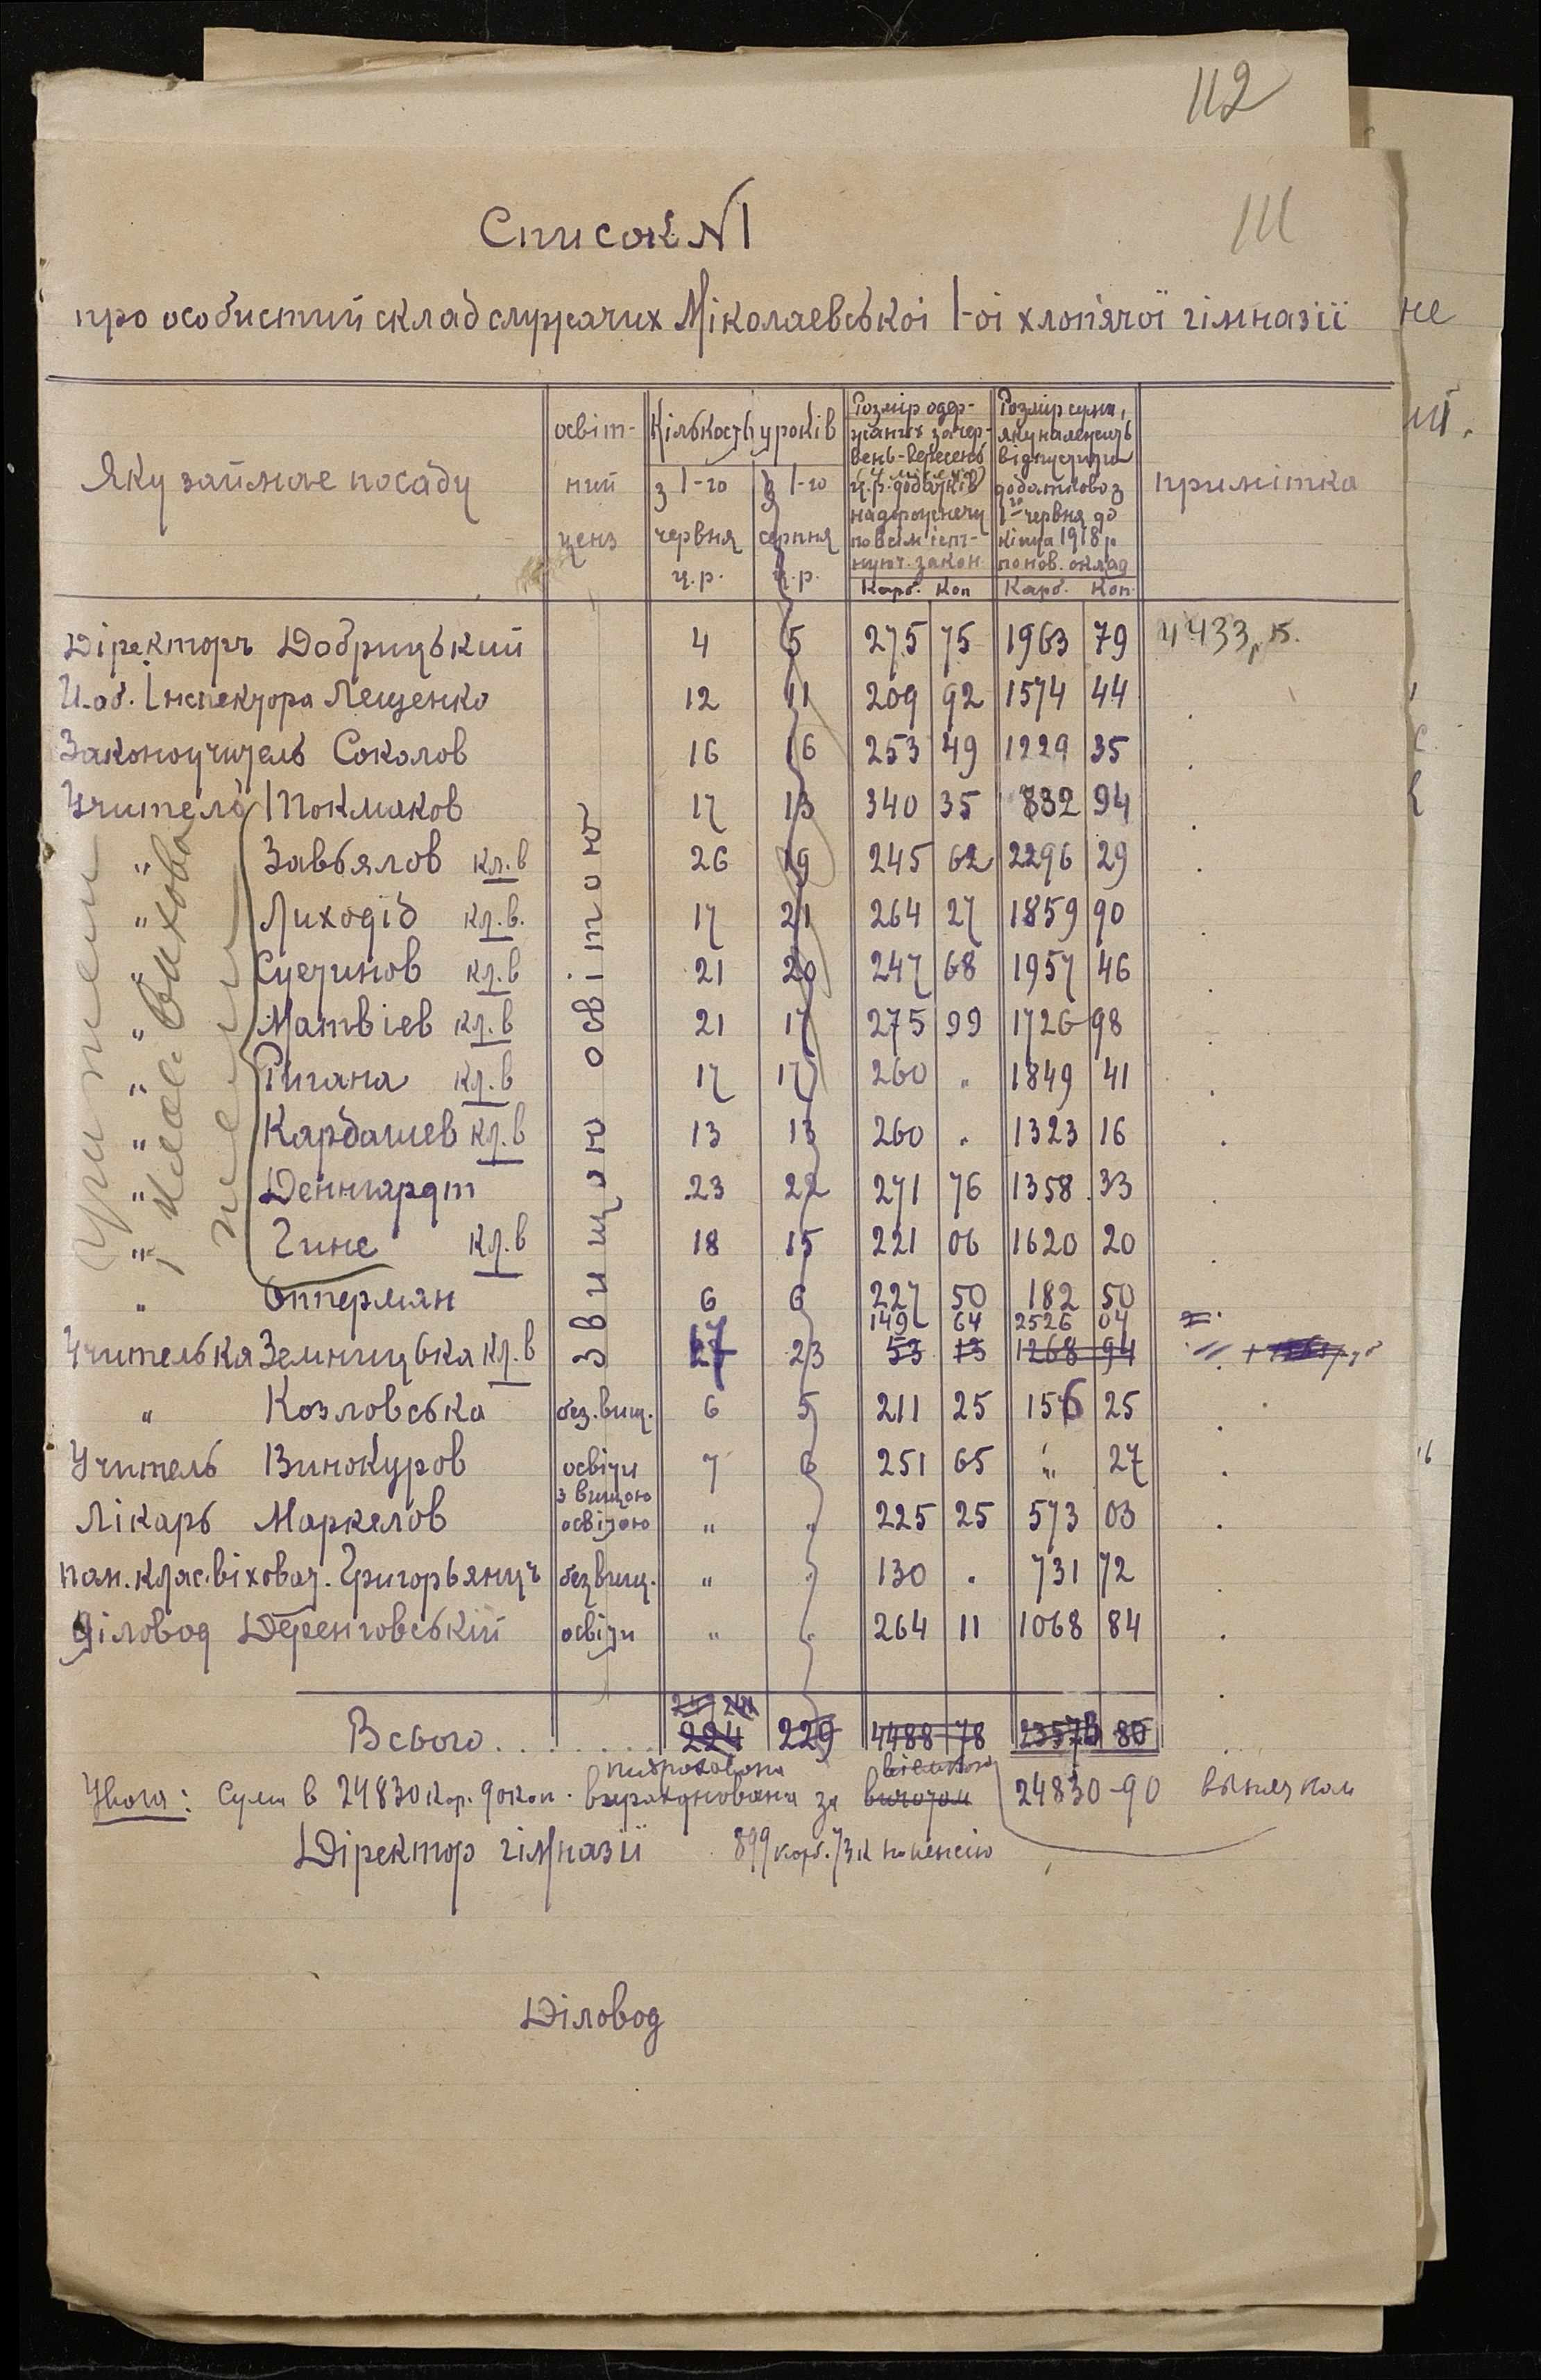 112
111
Список №1
про особистий склад служачих Міколаевськоі 1-оі хлопячоі гімназіі
Яку займае посаду
освіт-
ний
ценз
Кількость уроків
з 1-го
червня
ц.р.
з 1-го
серпня
ц.р.
Розмір одер-
жаних за чер-
вень-вересень
(4 місяця)
ц.р. додатків
на дорожнечу
по всім існ-
уюч. закон.
Карб. Коп
Розмір суми,
яку належить
відпустити
додатково з
1го червня до
кінця 1918 р
по нов. оклад
Карб. Коп.
примітка
Діректоръ Добрицький 4 5 275 75 1963 79 4433
И.об. Інспектора Лещенко 12 11 209 92 1574 44
Законоучитель Соколов 16 16 253 49 1229 35
Учитель Покмаков 17 13 340 35 832 94
" Завьялов кл.в 26 19 245 62 2296 29
" Лиходід кл.в. 17 21 264 27 1859 90
" Сучинов кл.в 21 20 247 68 1957 46
" Матвіев кл.в 21 17 275 99 1726 98
" Ригана кл.в 17 17 260 " 1849 41
" Кардашев кл.в 13 13 260 . 1323 16
" Деннгардт 23 22 271 76 1358 33
" Гине кл.в 18 15 221 06 1620 20
" Опперман 6 6 227 50 182 50
149 64 2526 04
Учителька Земницька кл.в 27 23 53 13 1268 94
" Козловська без.вищ. 6 5 211 25 156 25
Учитель Винокуров освіти 7 6 251 65 " 27
Лікарь Маркелов з вищою освітою " " 225 25 573 03
пом. клас. віховат. Григорьянич без вищ. " " 130 . 731 72
Діловод Деренговський освіти " " 264 11 1068 84
З вищою освітою
241
Всього . . . . . . . . 224 229 4488 78 23573 85
Увога: сума в 24830 кар. 90 коп. вирахунована за 24830-90
Діректор гімназіі 899 карб. 73 к
Діловод